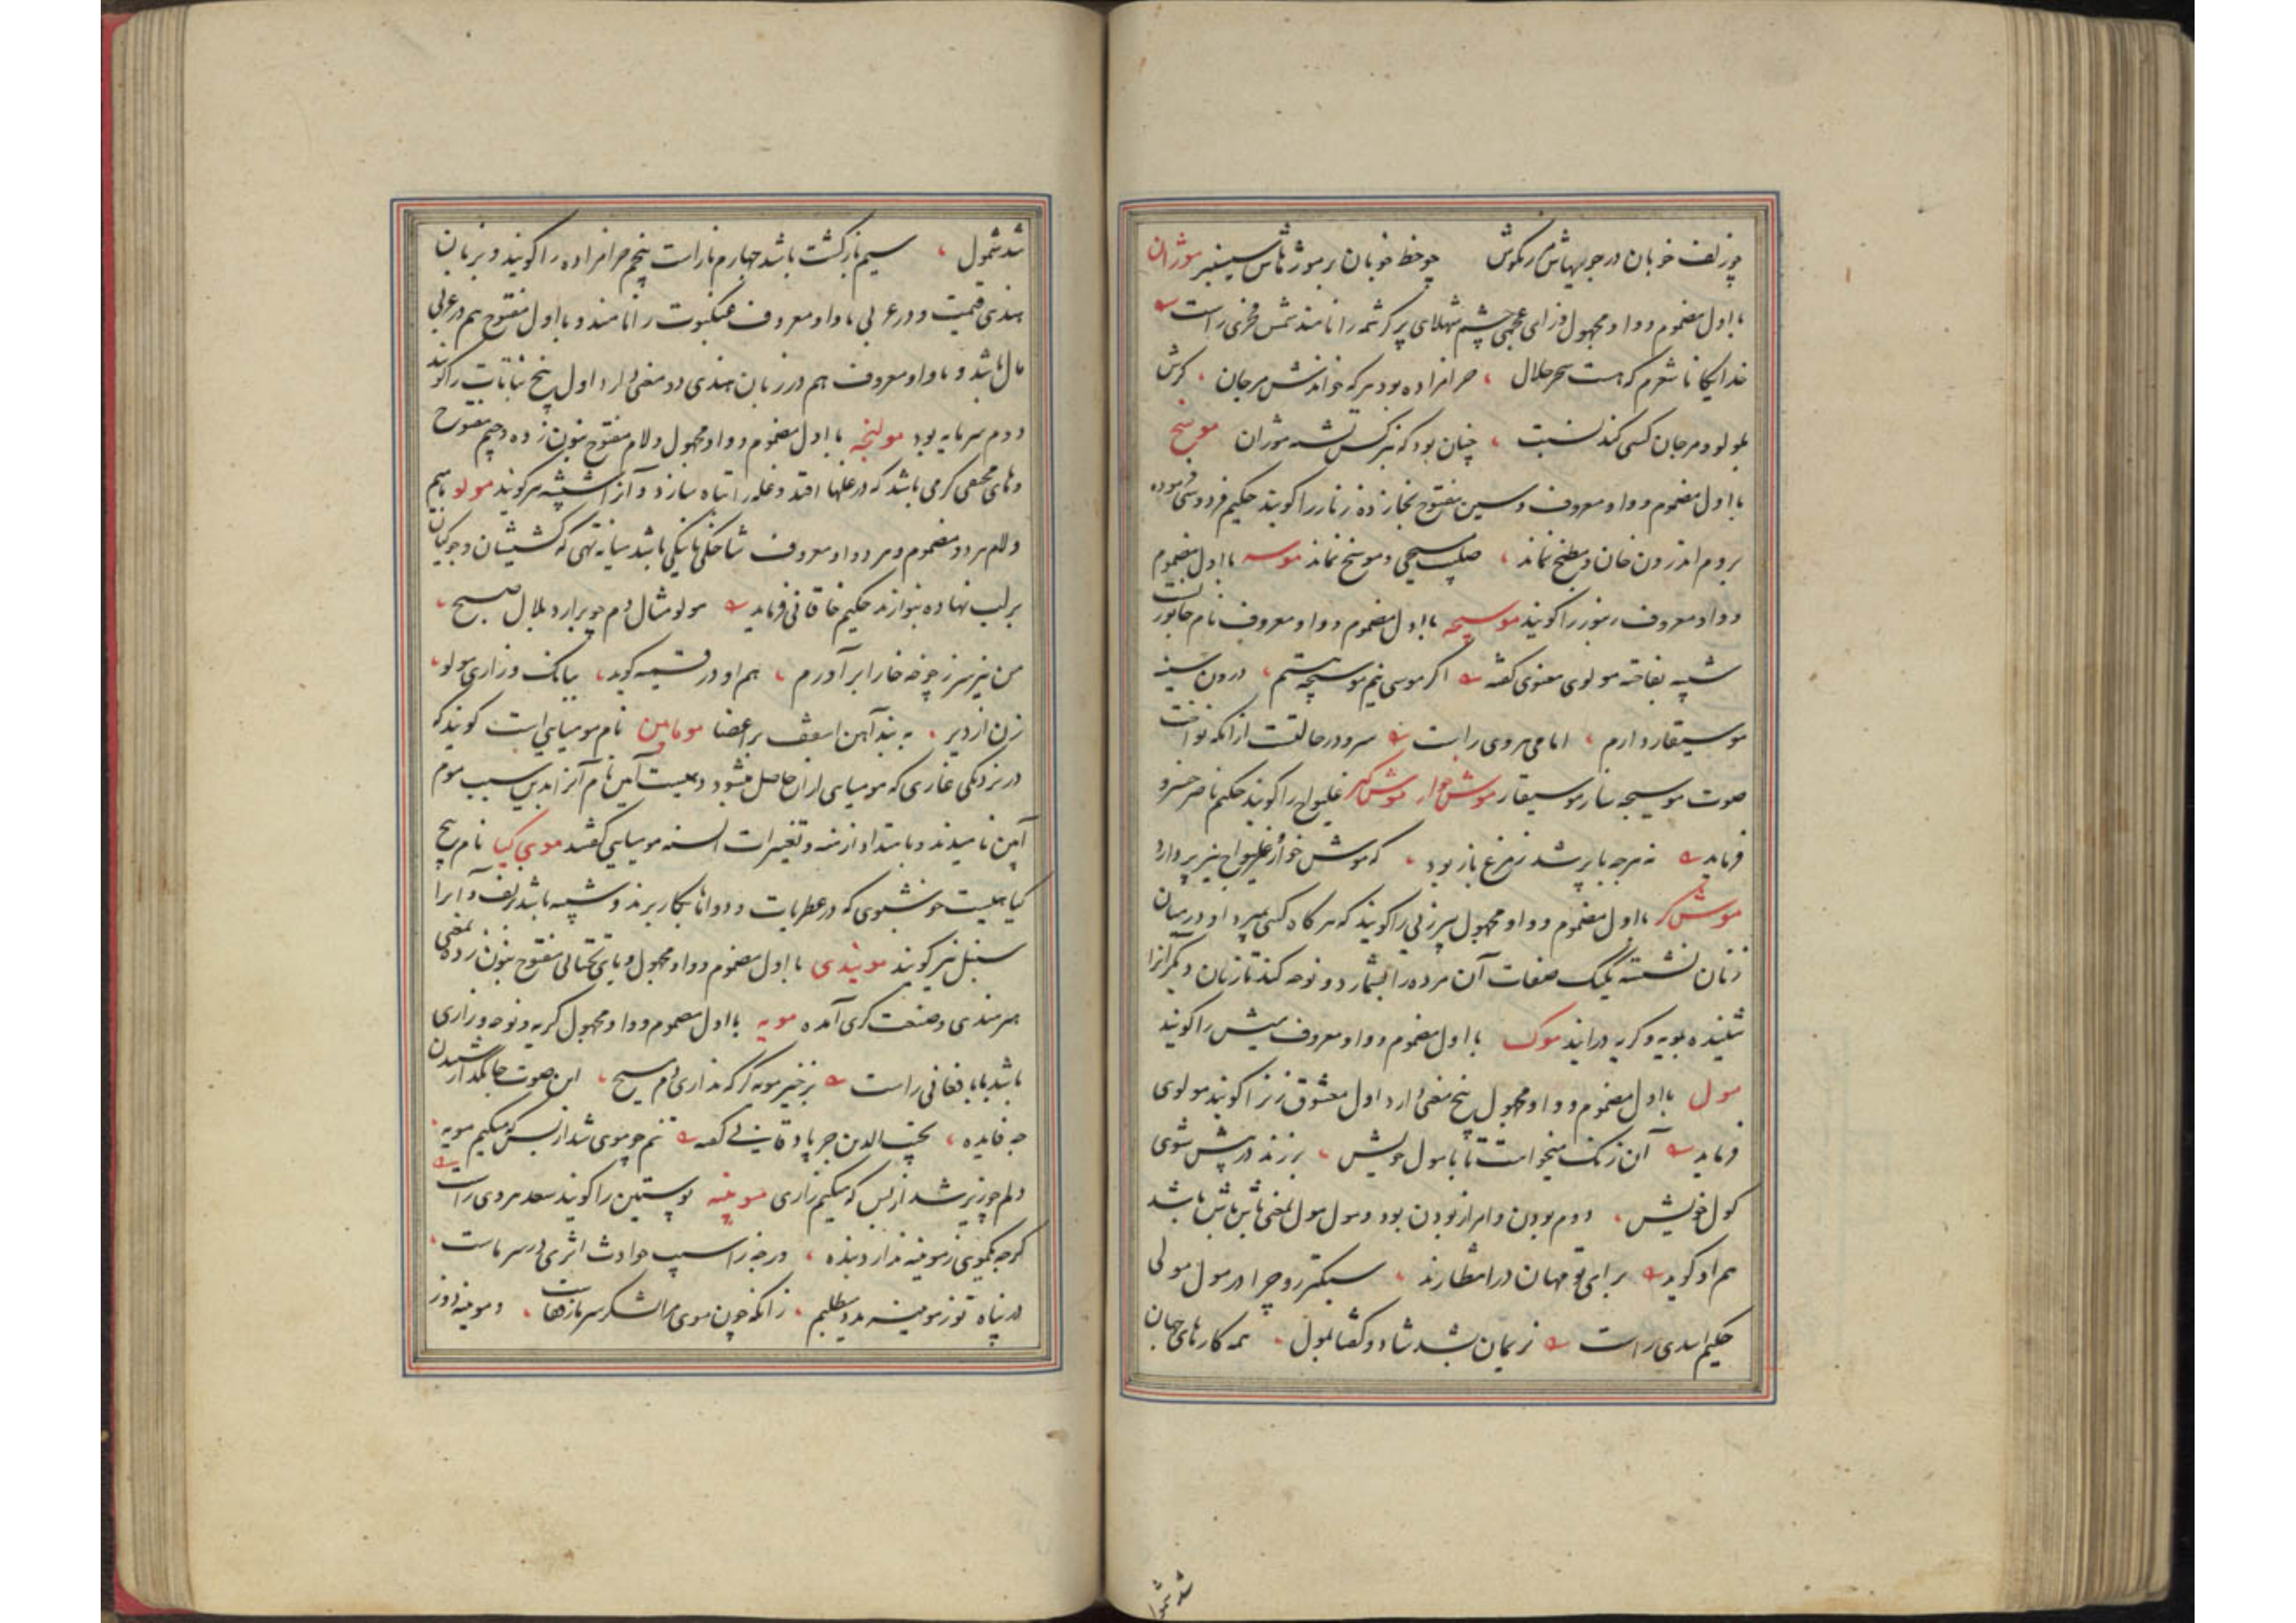 چو زلف خوبان در جویهاش مرزنگوش چو خط خوبان بر مورزهاش سیسنبر موژان
با اول مضموم و واو مجهول و زای عجمی چشم شهلای پر کرشمه را نامند شمس فخری راست
خدایکانا شعرم که هست سحر حلال حرامزاده بود هر که خواندش مرجان کرش
بلولو و مرجان کسی کند نسبت چنان بود که بنرکس نشه موژان موسخ
با اول مضموم و واو معروف و سین مفتوح بخا زده زنار را کویند حکیم فردوسی فرموده
بروم اندرون خان و مطبخ نماند صلیب مسیحی و موسخ نماند موسه با اول مضموم
و واو معروف زنبور را کویند موسیجه با اول مضموم و واو معروف نام جانوریست
شبیه بفاخته مولوی معنوی کفته اکر موسی نیم موسیچه هستم درون سینه
موسیقار دارم امامی هروی راست سرو در حالتست از آنکه نواخت
صوت موسیجه ساز موسیقار موش خوار موش کیر غلیواج را کویند حکیم ناصر خسرو
فرماید نه هرچه با پر شد ز مرغ باز بود که موش خوار و غلیواج نیز پر دارد
موش کر با اول مضموم و واو مجهول پیرزنی را کویند که هر کاه کسی بمیرد او در میان
زنان نشسته یکیک صفات آن مرده را بشمارد و نوحه کند تا زنان دیکر آنرا
شنیده بمویه و کریه درایند موک با اول مضموم و واو معروف نیش را کویند
مول با اول مضموم و واو مجهول پنج معنی دارد اول معشوق زن را کویند مولوی
فرماید آن زنک میخواست تا با مول خویش برزند در پیش شوی
کول خویش دوم بودن و امر از بودن بود و مول مول بمعنی باش باش باشد
هم او کوید برای تو مهان در انتظارند سبکتر رو چرا در مول مولی
حکیم اسدی راست نریمان بشد شاد و کفتا بمول همه کارهای جهان
شد شمول
شد شمول سیم بازکشت باشد چهارم ناز است پنجم حرامزاده را کویند و بزبان
هندی قیمت و در عربی با واو معروف عنکبوت را نامند و با اول مفتوح هم در عربی
مال باشد و با واو معروف هم در زبان هندی دو معنی دارد اول بیخ نباتات را کویند
دوم سرمایه بود مولنجه با اول مضموم و واو مجهول و لام مفتوح بنون زده و جیم مفتوح
و های مختفی کرمی باشد که در غلها افتد و غله را تباه سازد و آنرا شپشه هم کویند مولو با میم
و لام هر دو مضموم و هر دو واو معروف شاخکی باشد میانه تهی که کشیشان و جوکیان
بر لب نهاده بنوازند حکیم خاقانی فرماید مولو مثال دم چو برارد بلال صبح
من نیز سر ز چوخه خارا برآورم هم او در قسمیه کوید ببانک و زاری مولو
زن از دیر به بند آهن اسقف بر اعضا موم آیین نام مومیاییست کویند که
در نزدیکی غاری که مومیایی ازان حاصل میشود دهیست آیین نام آنرا بدین سبب موم
آیین نامیدند و بامتداد ازمنه و تغییرات السنه مومیایی کفتند موی کیا نام بیخ
کیاهیست خوشبوی که در عطریات و دواها بکار برند و شبیه باشد بزلف و آنرا
سنبل نیز کویند مویندی با اول مضموم و واو مجهول و یای تحتانی مفتوح بنون زده بمعنی
هنرمندی و صنعت کری آمده مویه با اول مضموم و واو مجهول کریه و نوحه و زاری
باشد بابا فغانی راست برخیز مویه کر که نداری دم مسیح این صوت جانکداز شنیدن
چه فایده نجیب الدین جرپادقانی کفته تنم چو موی شد از بس که میکنم مویه
دلم چو زیر شد از بس که میکنم زاری موینه پوستین را کویند سعد هروی راست
کرچه بمویی ز موینه ندارد بنده ورچه ز اسیب حوادث اثری در سر ماست
در پناه تو ز موینه مدد میطلبم زانکه چون موی مرا لشکر سرما ز قفاست و موینه دوز